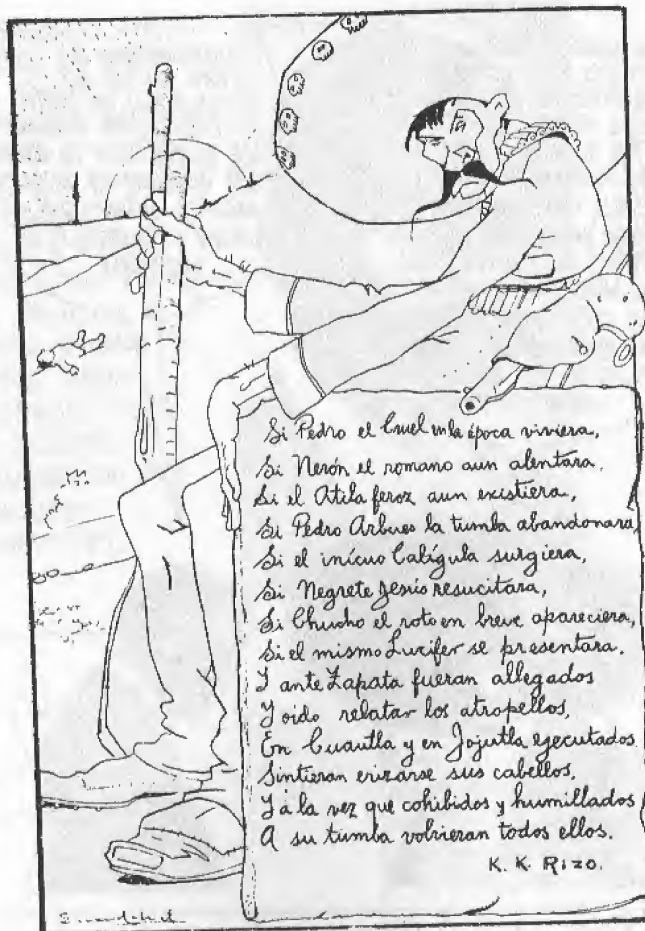 Si Pedro el Cruel en la época viviera,
Si Nerón el romano aun alentara.
Si el Atila feroz aun existiera,
Si Pedro Arbues la tumba abandonara,
Si el inícuo Calígula surgiera,
Si Negrete Jesús resucitara,
Si Chucho el roto en breve apareciera,
Si el mismo Lucifer se presentara.
Y ante Zapata fueran allegados
Y oido relatar los atropellos,
En Cuautla y en Jojutla ejecutados
Sintieran erizarse sus cabellos,
Y á la vez que cohibidos y humillados
A su tumba volvieran todos ellos.
K. K. Rizo.